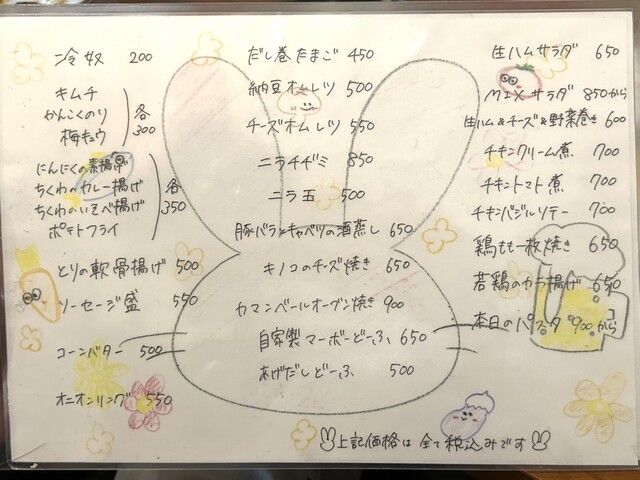 冷奴 200
キムチ
かんこくのり
梅キュウ
各
300
にんにくの素揚げ
ちくわのカレー揚げ
ちくわのいそべ揚げ
ポテトフライ
各
350
とりの軟骨揚げ 500
ソーセージ盛 550
コーンバター 500
オニオンリング 550
だし巻たまご 450
納豆オムレツ 500
チーズオムレツ 550
ニラチヂミ 850
ニラ玉 500
豚バラとキャベツの酒蒸し 650
キノコのチーズ焼き 650
カマンベールオーブン焼き 900
自家製マーボーどーふ 650
あげだしどーふ 500
生ハムサラダ 650
MIXサラダ 850から
生ハム&チーズ&野菜巻き 600
チキンクリーム煮 700
チキントマト煮 700
チキンバジルソテー 700
鶏もも一枚焼き 650
若鶏のカラ揚げ 650
本日のパスタ 900から
上記価格は全て税込みです